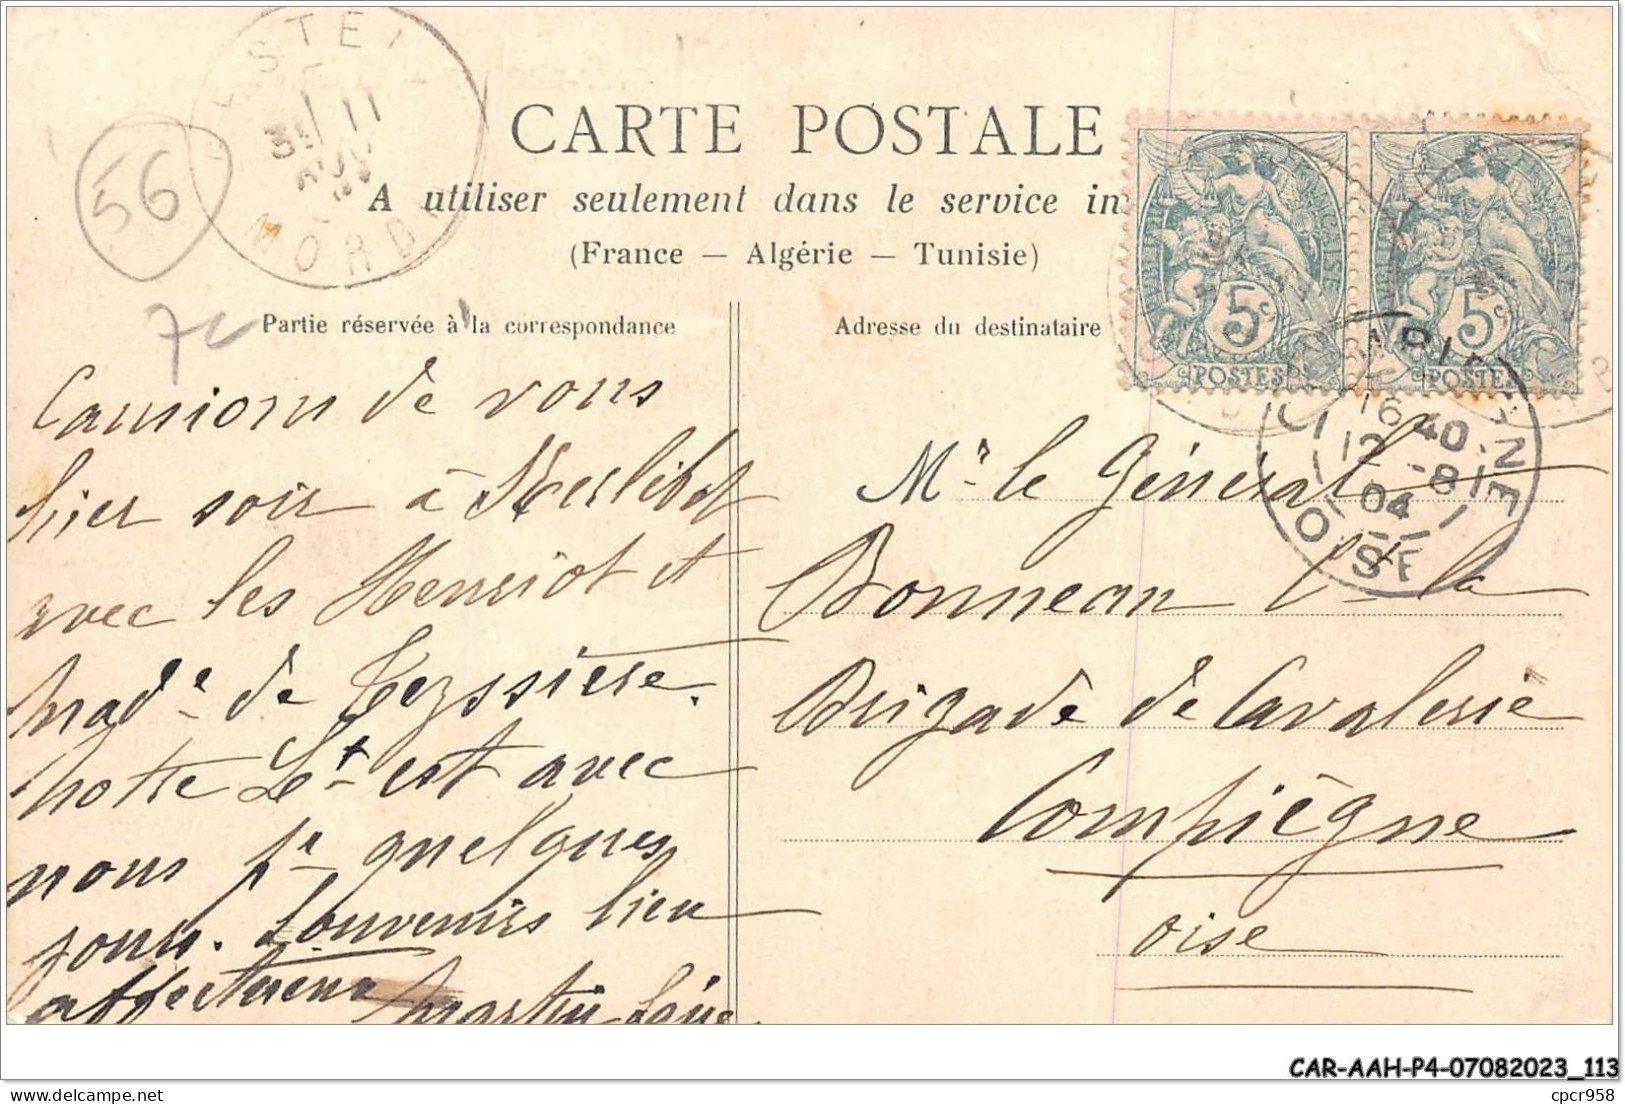 CARTE POSTALE
A utiliser seulement dans le service in
(France — Algérie — Tunisie)
56
7c
3 11
MORB
Partie réservée à la correspondance
Causions de vous
hier soir à Kerlibot
avec les Henriot et
Made de Teyssière.
notre Lt est avec
nous pr quelques
jours. Souvenirs bien
affectueux Martin
Adresse du destinataire
5c
POSTES
5c
POSTES
16 40
12 -8
04
OISE
Mr le Général
Bonneau Ct la
Brigade de Cavalerie
Compiègne
Oise
CAR-AAH-P4-07082023_113
cpcr958